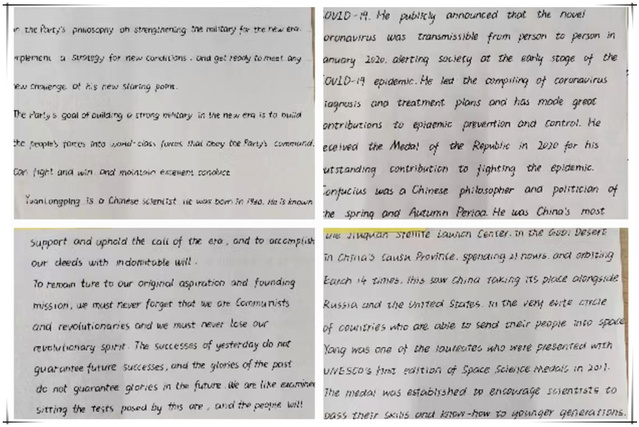 on the Party's philosophy on strengthening the military for the new era.
implement a strategy for new conditions. and get ready to meet any
new challenge at his new staring point.
The Party's goal of building a strong military in the new era is to build
the people's forces into world-class forces that obey the Party's command.
can fight and win and maintain excellent conduct
Yuanlongping is a Chinese scientist He was born in 1930. He is known
OVID-19. He publicly announced that the novel
oronavirus was transmissible from person to person in
anuary 2020, alerting society at the early stage of the
OVID-19 epidemic. He led the compiling of coronavirus
iagnosis and treatment plans and has made great
ontributions to epidemic prevention and control. He
eceived the Medal of the Republic in 2020 for his
utstanding contribution to fighting the epidemic.
onfucius was a Chinese philosopher and politician of
he spring and Autumn Period. He was China's most
support and uphold the call of the era, and to accomplish
our deeds with indomitable will.
To remain ture to our original aspiration and founding
mission, we must never forget that we are Communists
and revolutionaries and we must never lose our
revolutionary spirit. The successes of yesterday do not
guarantee future successes, and the glories of the past
do not guarantee glories in the future. We are like examinee
sitting the tests posed by this are, and the people will
the Jiuquan Stellite Launch Center. in the Gobi Desert
in China's Gausu Province, spending 21 hours. and orbiting
Earch 14 times. this saw China taking its place alongside
Russia and the United States. in the very elite circle
of countries who are able to send their people into space
Yang was one of the laureates who were presented with
UNESCO's first edition of Space Science Medals in 2017.
The medal was established to encourage scientists to
pass their skills and know-how to younger generations.